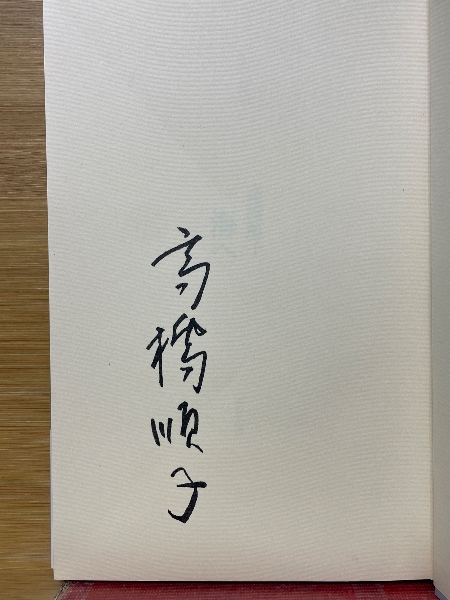 高橋順子